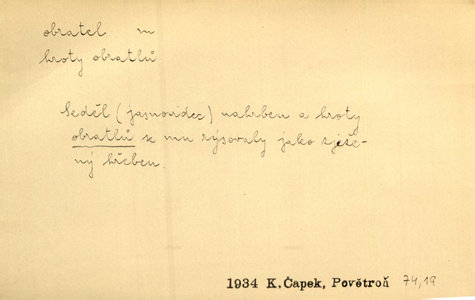 obratel m
hroty obratlů
Seděl (jasnovidec) nahrben a hroty
obratlů se mu rýsovaly jako zježe-
ný hřeben.
1934 K.Čapek, Povětroň 74,19